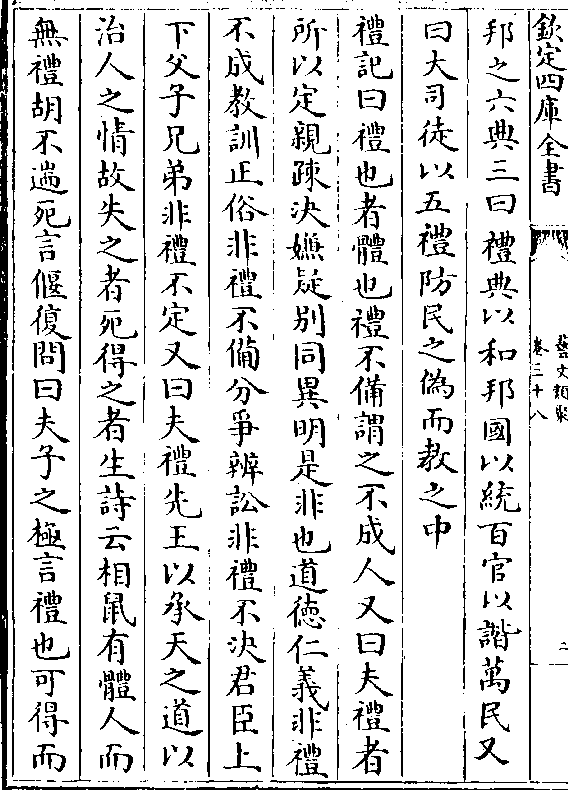 欽定四庫全書
藝文類聚
卷三十八
二
邦之六典三曰禮典以和邦國以統百官以諧萬民又
曰大司徒以五禮防民之偽而教之中
禮記曰禮也者體也禮不備謂之不成人又曰夫禮者
所以定親疎決嫌疑别同異明是非也道德仁義非禮
不成教訓正俗非禮不備分爭辨訟非禮不決君臣上
下父子兄弟非禮不定又曰夫禮先王以承天之道以
治人之情故失之者死得之者生詩云相鼠有體人而
無禮胡不遄死言偃復問曰夫子之極言禮也可得而